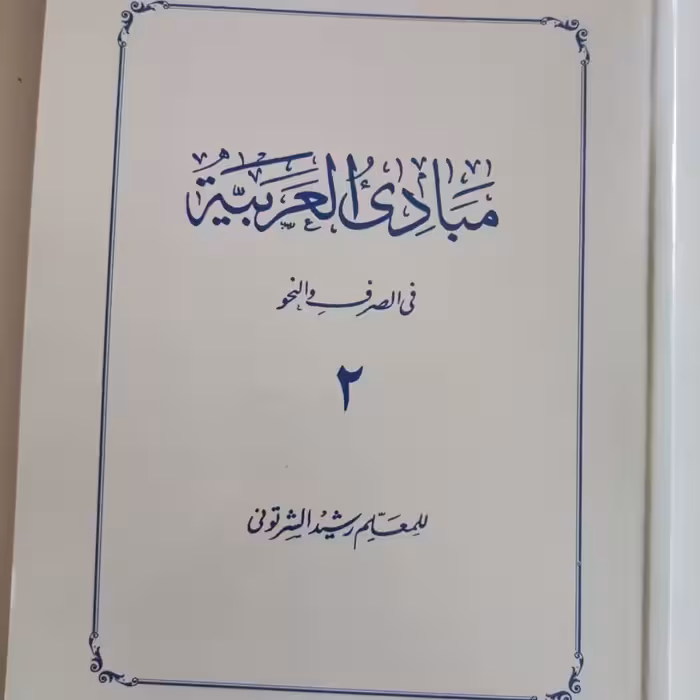 مَبَادِئُ العَرَبيَّةُ
في الصرف والنحو
٢
للمعَلّم رشيْد الشرتوني